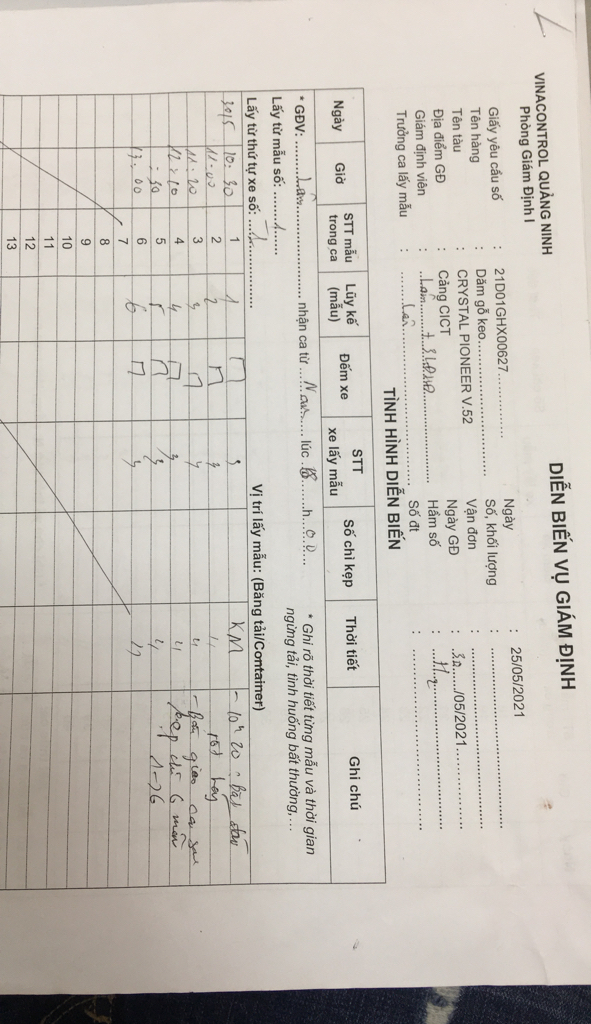 VINACONTROL QUẢNG NINH
Phòng Giám Định I
DIỄN BIẾN VỤ GIÁM ĐỊNH
Giấy yêu cầu số : 21D01GHX00627............... Ngày : 25/05/2021
Tên hàng : Dăm gỗ keo............... Số, khối lượng : ...............
Tên tàu : CRYSTAL PIONEER V.52 Vận đơn : ...............
Địa điểm GĐ : Cảng CICT Ngày GĐ : 30...../05/2021...............
Giám định viên : Lâm + Hầm số : H.2
Trưởng ca lấy mẫu : Lâm Số đt : ...............
TÌNH HÌNH DIỄN BIẾN
Ngày Giờ STT mẫu trong ca Lũy kế (mẫu) Đếm xe STT xe lấy mẫu Số chì kẹp Thời tiết Ghi chú
* GĐV: ....Lâm.... nhận ca từ ....Nam.... lúc ........h..00... * Ghi rõ thời tiết từng mẫu và thời gian
Lấy từ mẫu số: .....1..... ngừng tải, tình huống bất thường,...
Lấy từ thứ tự xe số: .....1..... Vị trí lấy mẫu: (Băng tải/Container)
30/5 10:30 1 1 3 KM - 10h20: Bắt đầu
11:00 2 2 3 " rót hàng
11:20 3 3 " - Bàn giao ca sau
12:10 4 4 3 " kẹp chì 6 mẫu
:30 5 5 3 " 1->6
17:00 6 6 "
7
8
9
10
11
12
13